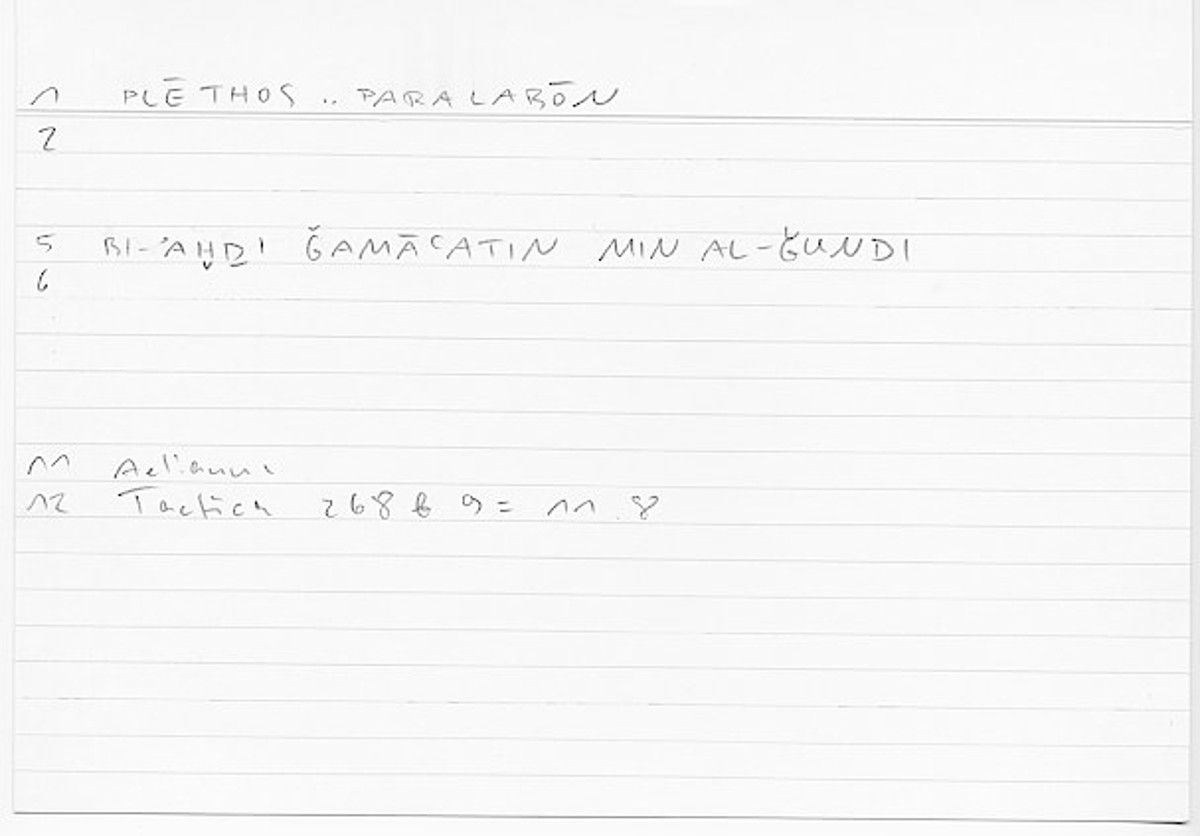 1 PLĒTHOS .. PARALABŌN
2
5 BI-ʾAḪḎI ǦAMĀʿATIN MIN AL-ǦUNDI
6
11 Aelianus
12 Tactica 268 b 9 = 11.8